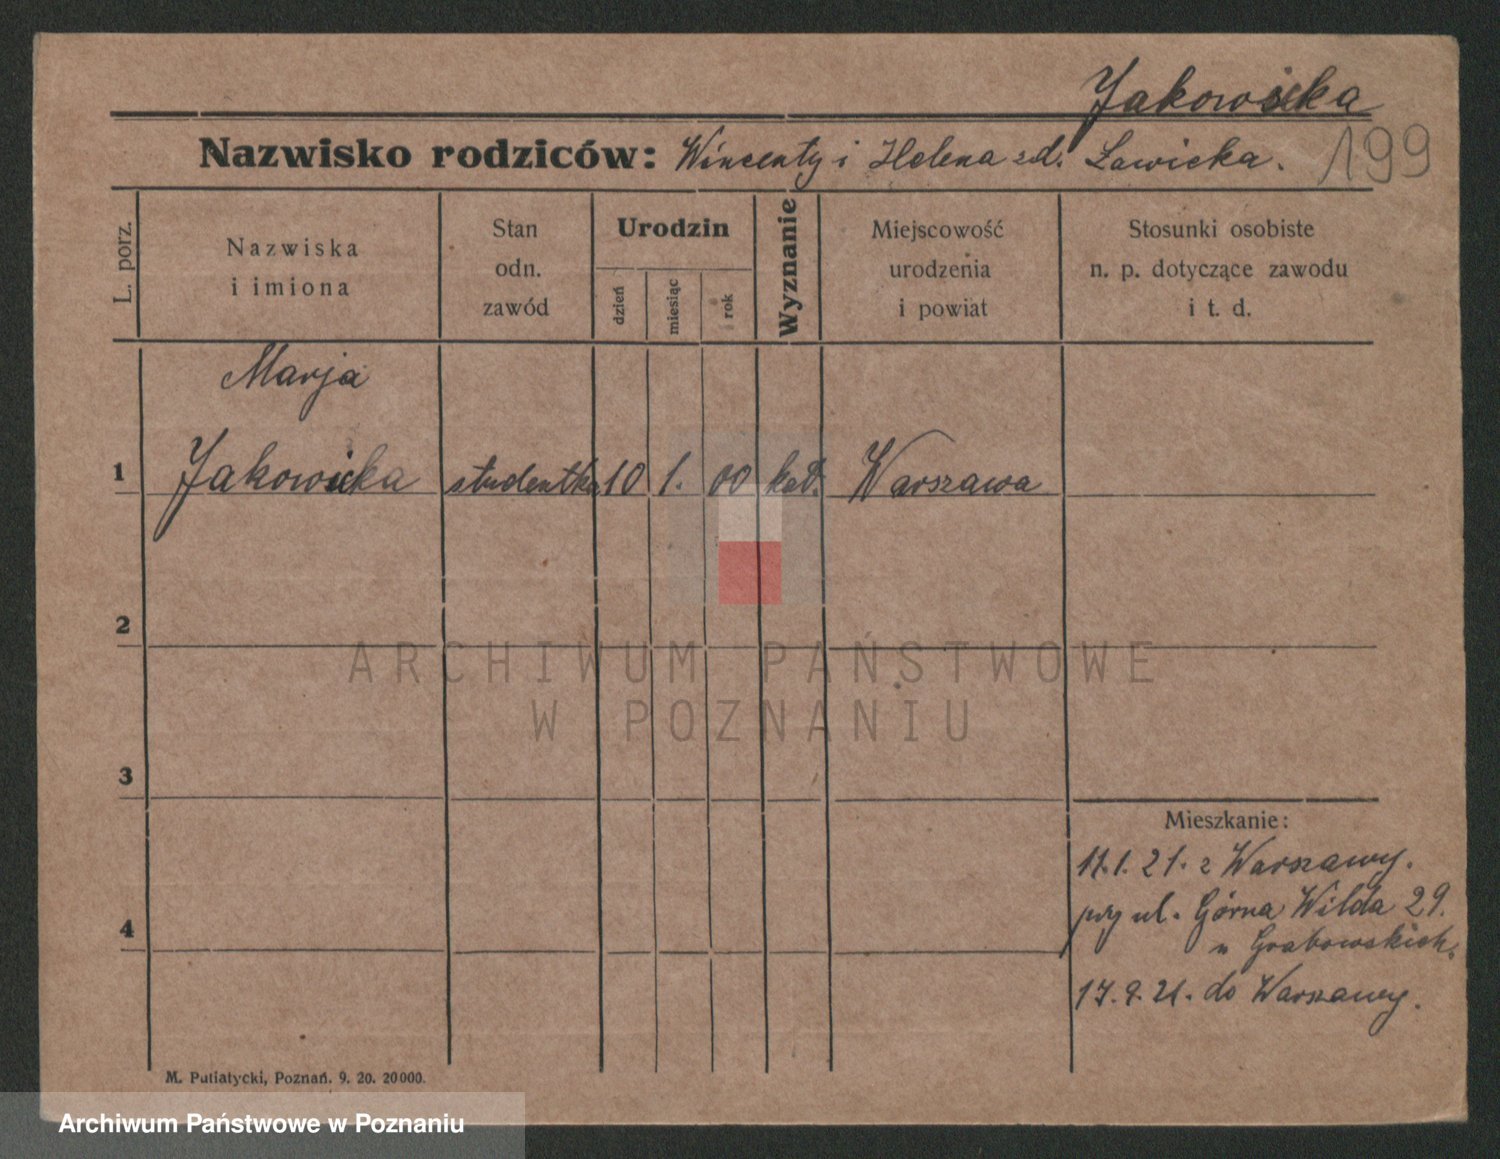 Jakowicka
Nazwisko rodziców: Wincenty i Helena zd. Ławicka.
199
L. porz.
Nazwiska
i imiona
Stan
odn.
zawód
Urodzin
dzień
miesiąc
rok
Wyznanie
Miejscowość
urodzenia
i powiat
Stosunki osobiste
n. p. dotyczące zawodu
i t. d.
Marja
1 Jakowicka studentka 10 1. 00 kat. Warszawa
2
ARCHIWUM PAŃSTWOWE
W POZNANIU
3
Mieszkanie:
11.1.21. z Warszawy.
przy ul. Górna Wilda 29.
4
u Grabowskich.
17.9.21. do Warszawy.
M. Putiatycki, Poznań. 9. 20. 20000.
Archiwum Państwowe w Poznaniu